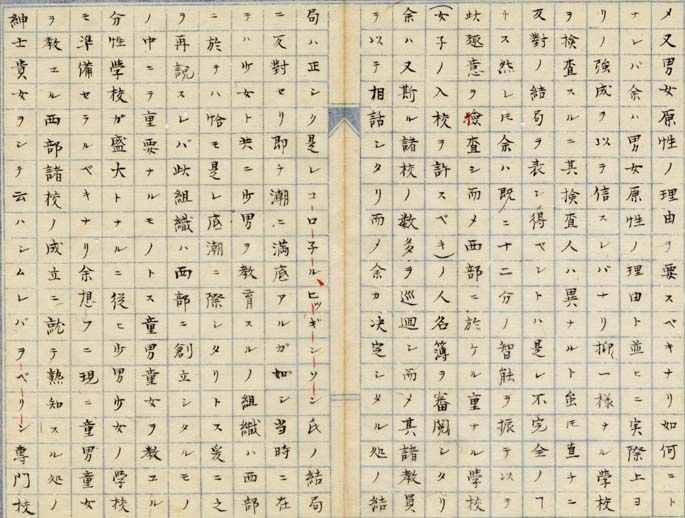 メ又男女原性ノ理由ヲ要スベキナリ如何ニト
ナレバ余ハ男女原性ノ理由ト並ヒニ実際上ヨ
リノ強成ヲ以テ信スレバナリ抑一様ナル學校
ヲ検査スルニ其検査人ハ異ナルト虽モ直チニ
反對ノ結局ヲ表シ得ベシトハ是レ不完全ノヿ
トス然レモ余ハ既ニ十二分ノ智触ヲ振テ以テ
此趣意ヲ検査シ而メ西部ニ於ケル重ナル學校
(女子ノ入校ヲ許スベキ)ノ人名簿ヲ審閲シタリ
余ハ又斯ル諸校ノ数多ヲ巡廻シ而メ其諸教員
ヲ以テ相話シタリ而メ余カ决定シタル処ノ結
局ハ正シク是レコーロ子ル、ヒッギーンソン氏ノ結局
ニ反對セリ即チ潮ニ満底アルガ如シ当時ニ在
テハ少女ト共ニ少男ヲ教育スルノ組織ハ西部
ニ於テハ恰モ是レ底潮ニ際シタリトス爰ニ之
ヲ再説スレバ此組織ハ西部ニ創立シタルモノ
ノ中ニテ重要ナルモノトス童男童女ヲ教エル
分性學校ガ盛大トナルニ従ヒ少男少女ノ學校
モ準備セテルベキナリ余想フニ現ニ童男童女
ヲ教エル西部諸校ノ成立ニ就テ熟知スル処ノ
紳士貴女ヲシテ云ハシムレバヲーベーリン專門校